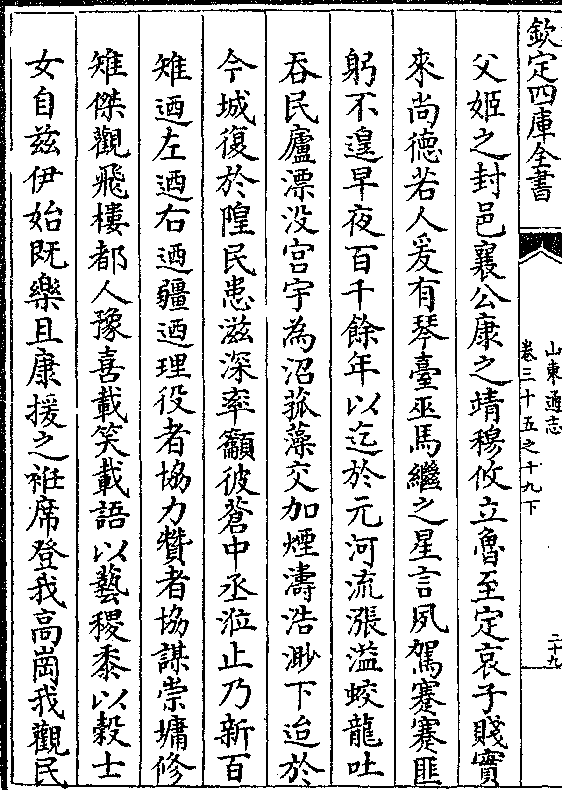 欽定四庫全書
山東通志
卷三十五之十九下
二十九
父姬之封邑襄公康之靖穆攸立魯至定哀子賤實
來尚德若人爰有琴臺巫馬繼之星言夙駕蹇蹇匪
躬不遑早夜百千餘年以迄於元河流漲溢蛟龍吐
吞民廬漂没宫宇為沼菰藻交加煙濤浩渺下迨於
今城復於隍民患滋深率籲彼蒼中丞涖止乃新百
雉迺左迺右迺疆迺理役者協力贊者協謀崇墉修
雉傑觀飛樓都人豫喜載笑載語以藝稷黍以穀士
女自兹伊始既樂且康援之袵席登我高崗我觀民